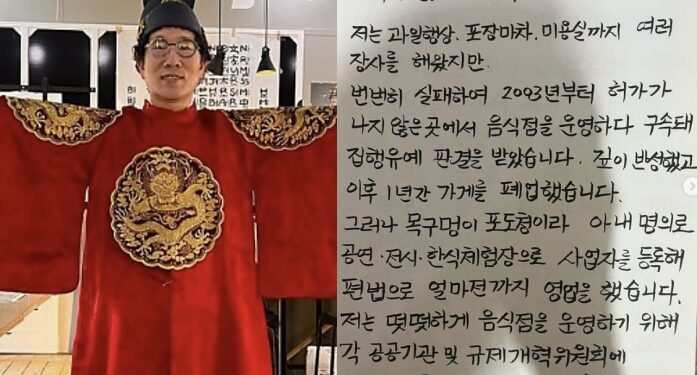 저는 과일행상, 포장마차, 미용실까지 여러
장사를 해왔지만,
번번히 실패하여 2003년부터 허가가
나지 않은 곳에서 음식점을 운영하다 구속돼
집행유예 판결을 받았습니다. 깊이 반성했고
이후 1년간 가게를 폐업했습니다.
그러나 목구멍이 포도청이라 아내 명의로
공연·전시·한식체험장으로 사업자를 등록해
편법으로 얼마전까지 영업을 했습니다.
저는 떳떳하게 음식점을 운영하기 위해
각 공공기관 및 규제개혁위원회에